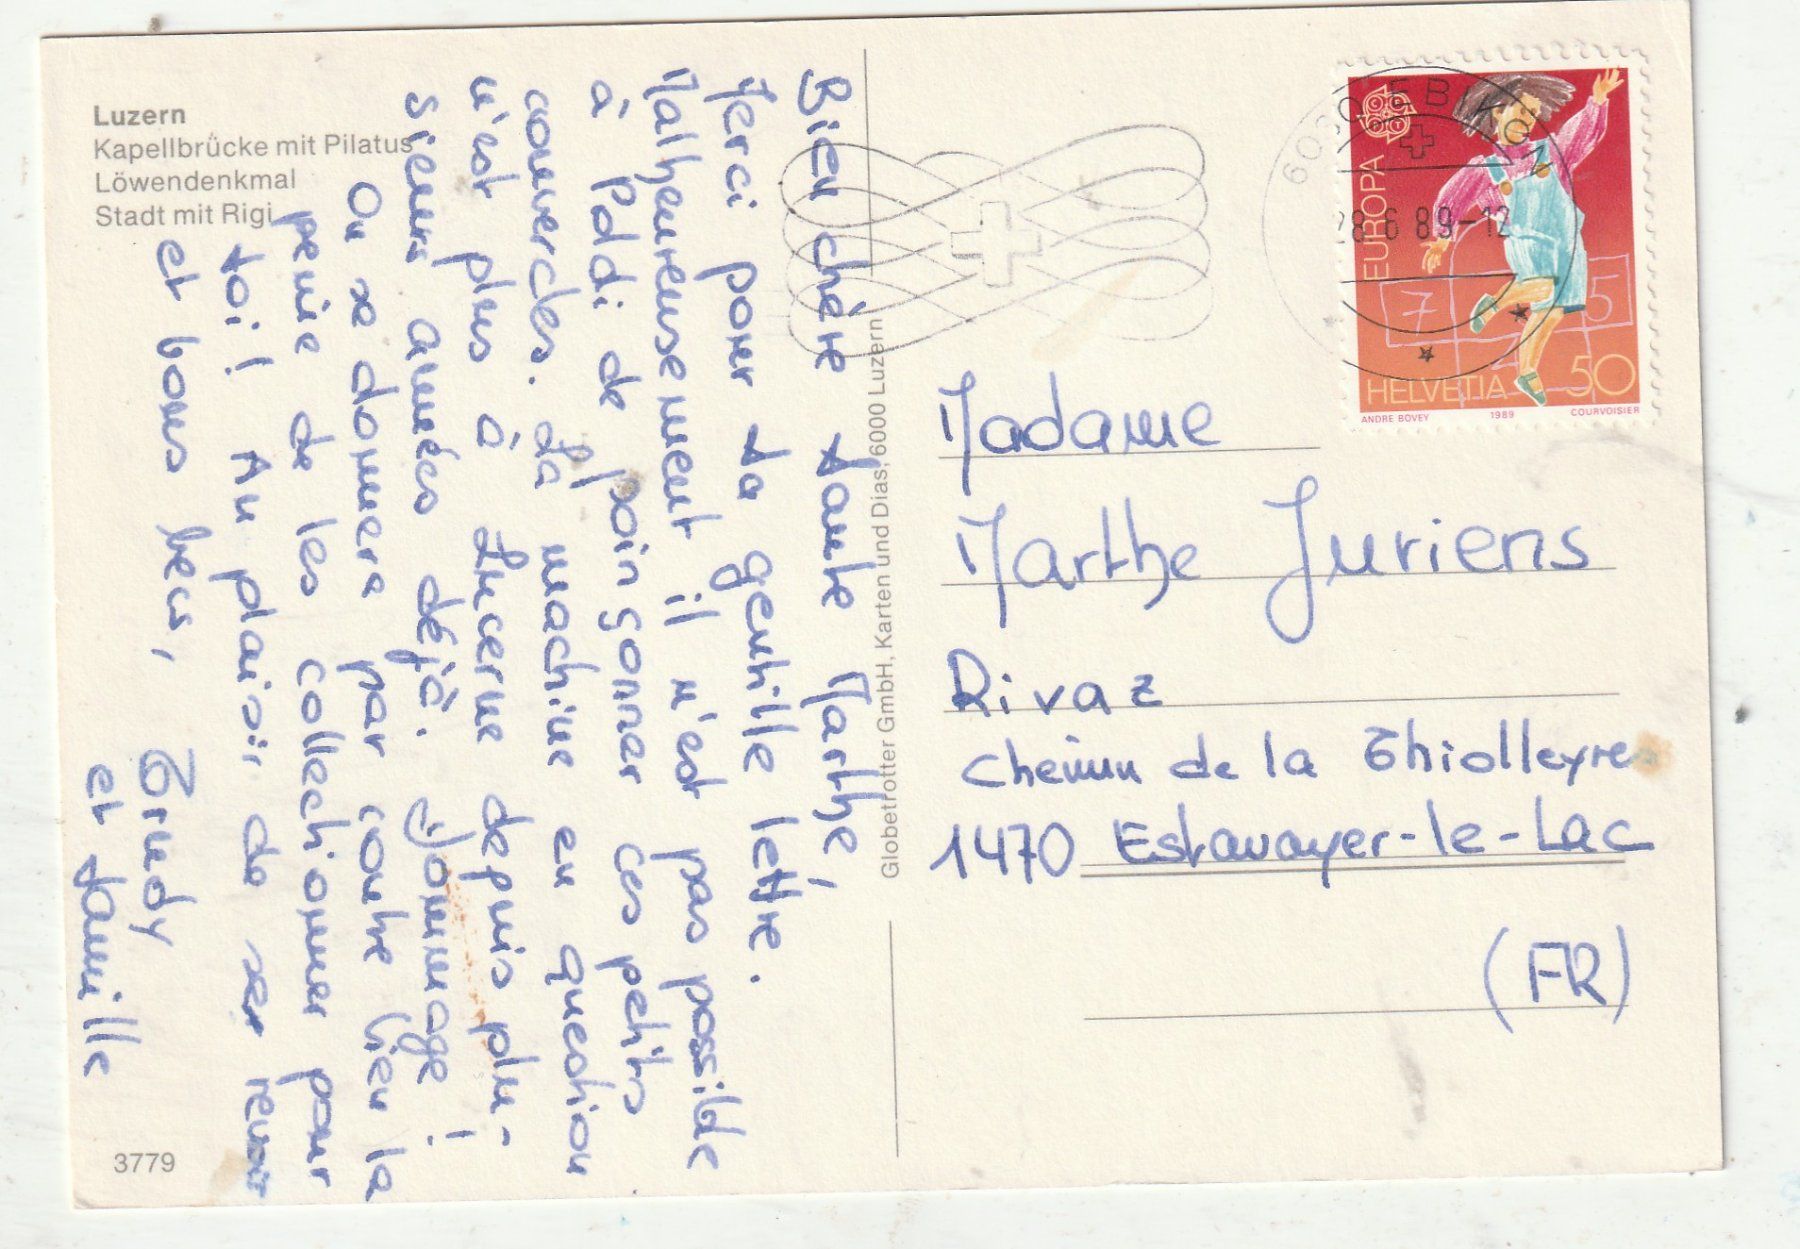 Luzern
Kapellbrücke mit Pilatus
Löwendenkmal
Stadt mit Rigi
Bien chère tante Marthe,
Merci pour ta gentille lettre.
Malheureusement il n'est pas possible
à Pddi de poinçonner ces petits
couvercles. La machine en question
n'est plus à Lucerne depuis plu-
sieurs années déjà. Dommage!
On se donnera par contre bien la
peine de les collectionner pour
toi! Au plaisir de ser revoir
et bons becs,
Trudy
et famille
3779
Globetrotter GmbH, Karten und Dias, 6000 Luzern
6030 EBIKON
28.6.89-12
EUROPA
7
5
HELVETIA 50
ANDRE BOVEY 1989 COURVOISIER
Madame
Marthe Juriens
Rivaz
Chemin de la Thiolleyres
1470 Estavayer-le-Lac
(FR)